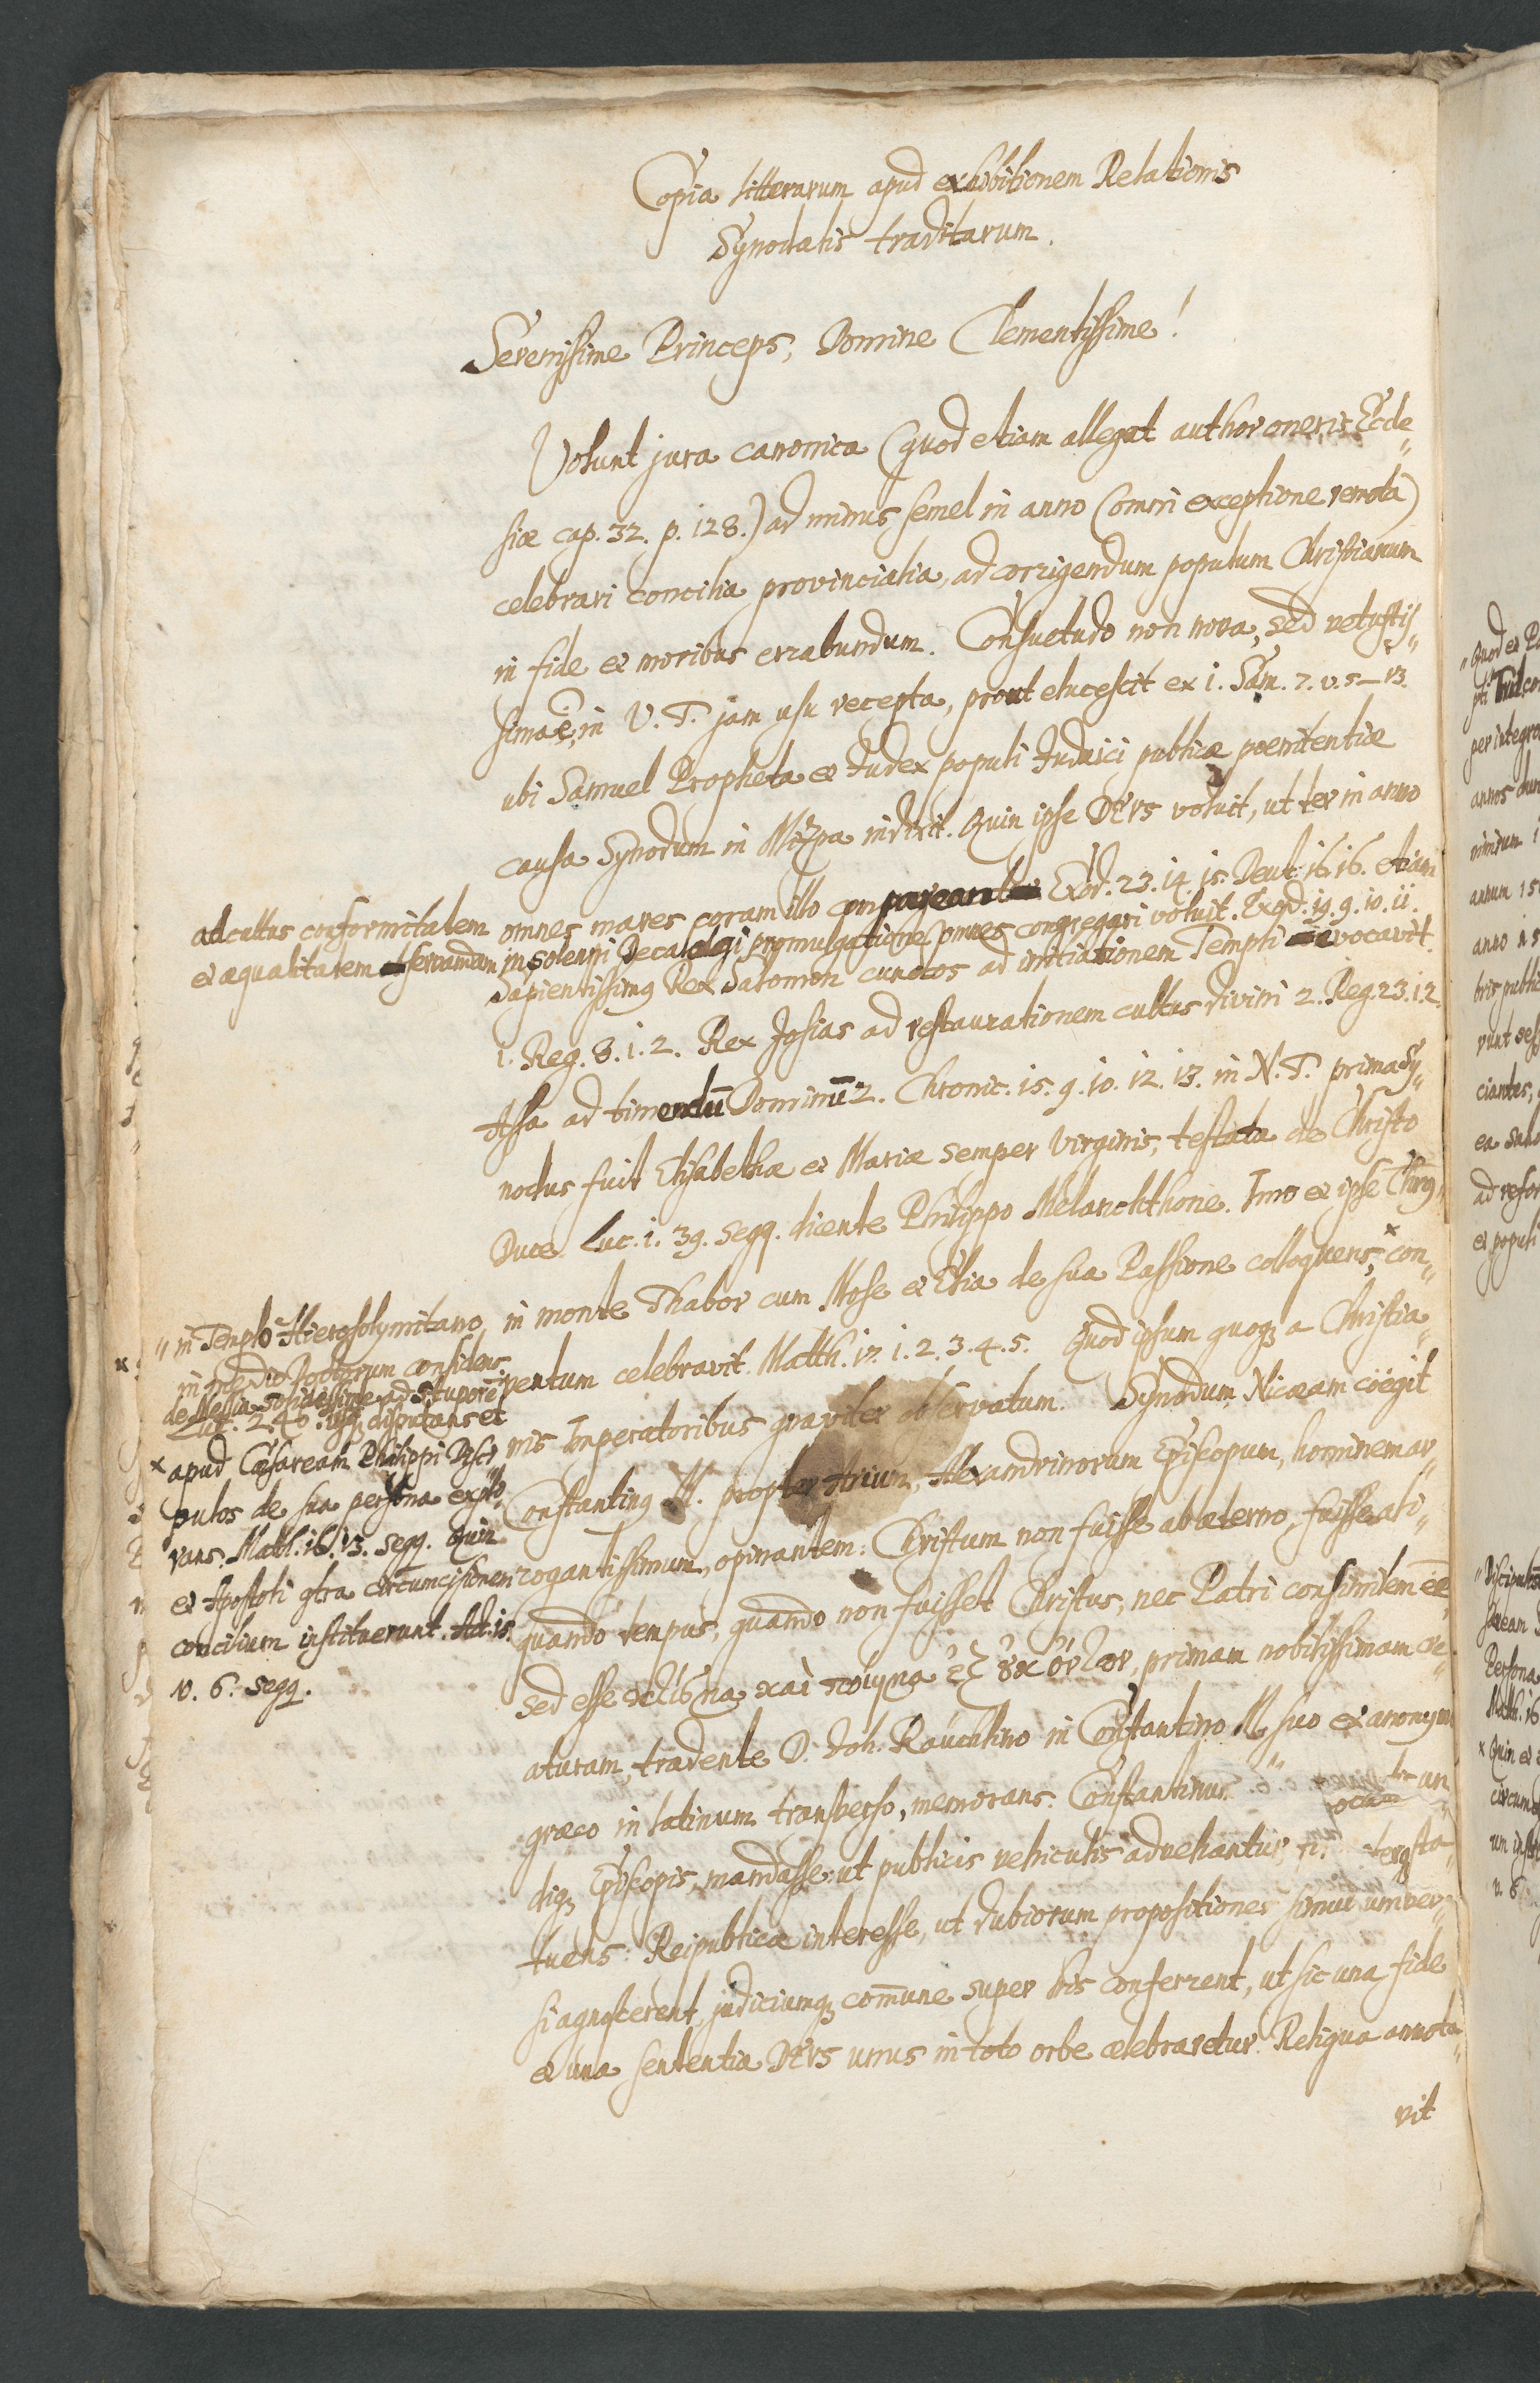 Copia litterarum apud exhibitionem Relationis
Synodalis traditarum.
Serenissime Princeps, Domine Clementissime!
Volunt jura canonica (quod etiam allegat author oneris Eccle„
siæ cap. 32. p. 128.) ad minus semel in anno (omni exceptione remota)
celebrari concilia provincialia, ad corrigendum populum Christianum
in fide et moribus errabundum. Consuetudo non nova, sed vetustis„
sima ē, in V. T. jam usu recepta, prout elucescit ex 1. Sam. 7. v. 5–13.
ubi Samuel Propheta et Judex populi Judaici publicæ poenitentiæ
causa Synodum in Mizpa indixit. Quin ipse DEVS voluit, ut ter in anno
omnes mares coram illo compareant Exod. 23. 14. 15. Deut. 16. 16. etiam
in solenni Decalogi promulgatione omnes congregari voluit. Exod. 19. 9. 10. 11.
ad cultus conformitatem
et æqualitatem servandam
Sapientissimus Rex Salomon cunctos ad initiationem Templi vocavit.
1. Reg. 8. 1. 2. Rex Josias ad restaurationem cultus divini 2. Reg. 23. 1. 2.
Assa ad timendū Dominū 2. Chronic. 15. 9. 10. 12. 13. in N. T. prima Sy„
nodus fuit Elisabethæ et Mariæ semper Virginis, testata de Christo
Duce. Luc. 1. 39. seqq. dicente Philippo Melanchthone. Imo et ipse Chrus„
in monte Thabor cum Mose et Elia de sua Passione colloquens, × con„
ventum celebravit. Matth. 17. 1. 2. 3. 4. 5. Quod ipsum quoqz a Christia„
nis Imperatoribus graviter observatum. Synodum Nicæam cöegit
Constantinus M. propter Arium, Alexandrinorum Episcopum, hominem ar„
rogantissimum, opinantem: Christum non fuisse ab æterno, fuisse ali„
quando tempus, quando non fuisset Christus, nec Patri consimilem ēē,
sed esse κτίσμα καὶ ποίημα ἐξ ȣκ ὄντων, primam nobilissimam cre„
aturam, tradente D. Joh. Rauchlino in Constantino M. suo ex anonymo
græco in latinum transverso, memorans: Constantinus un„
diqz Episcopis, mandasse, ut publicis vehiculis advehantur,
tuens: Reipublicæ interesse, ut dubiorum propositiones simul univer„
si agnoscerent, judiciumqz com̄une super his conferrent, ut sic una fide
et una sententia DEVS unus in toto orbe celebraretur. Reliqua annota„
vit
„ in Templo Hierosolymitano
in medio Doctorum considens
de Messia ad stuporē
Luc. 2. 46. disputans et
× apud Cæsaream Philippi Disci„
pulos de sua persona explo„
rans. Matth. 16. 13. seqq. Quin
et Apostoli contra circumcisionem
concilium instituerunt. Act. 15.
v. 6. seqq.